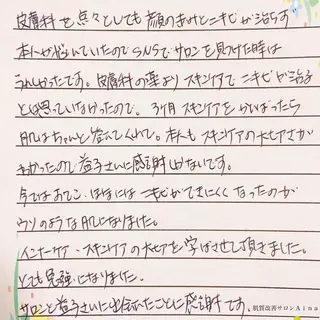 皮膚科を点々としても顔の赤みとニキビが治らず
本人が悩んでいたのでSNSでサロンを見つけた時は
うれしかったです。皮膚科の薬よりスキンケアでニキビが治る
とは思っていなかったので。3ヶ月スキンケアをがんばったら
肌はちゃんと答えてくれて。本人もスキンケアの大切さが
わかったので益子さんに感謝しかないです。
今ではおでこ・ほほにはニキビができにくくなったのが
ウソのような肌になりました。
インナーケア・スキンケアの大切を学ばさせて頂きました。
とても勉強になりました。
サロンと益子さんに出会ったことに感謝です。
肌質改善サロンAina